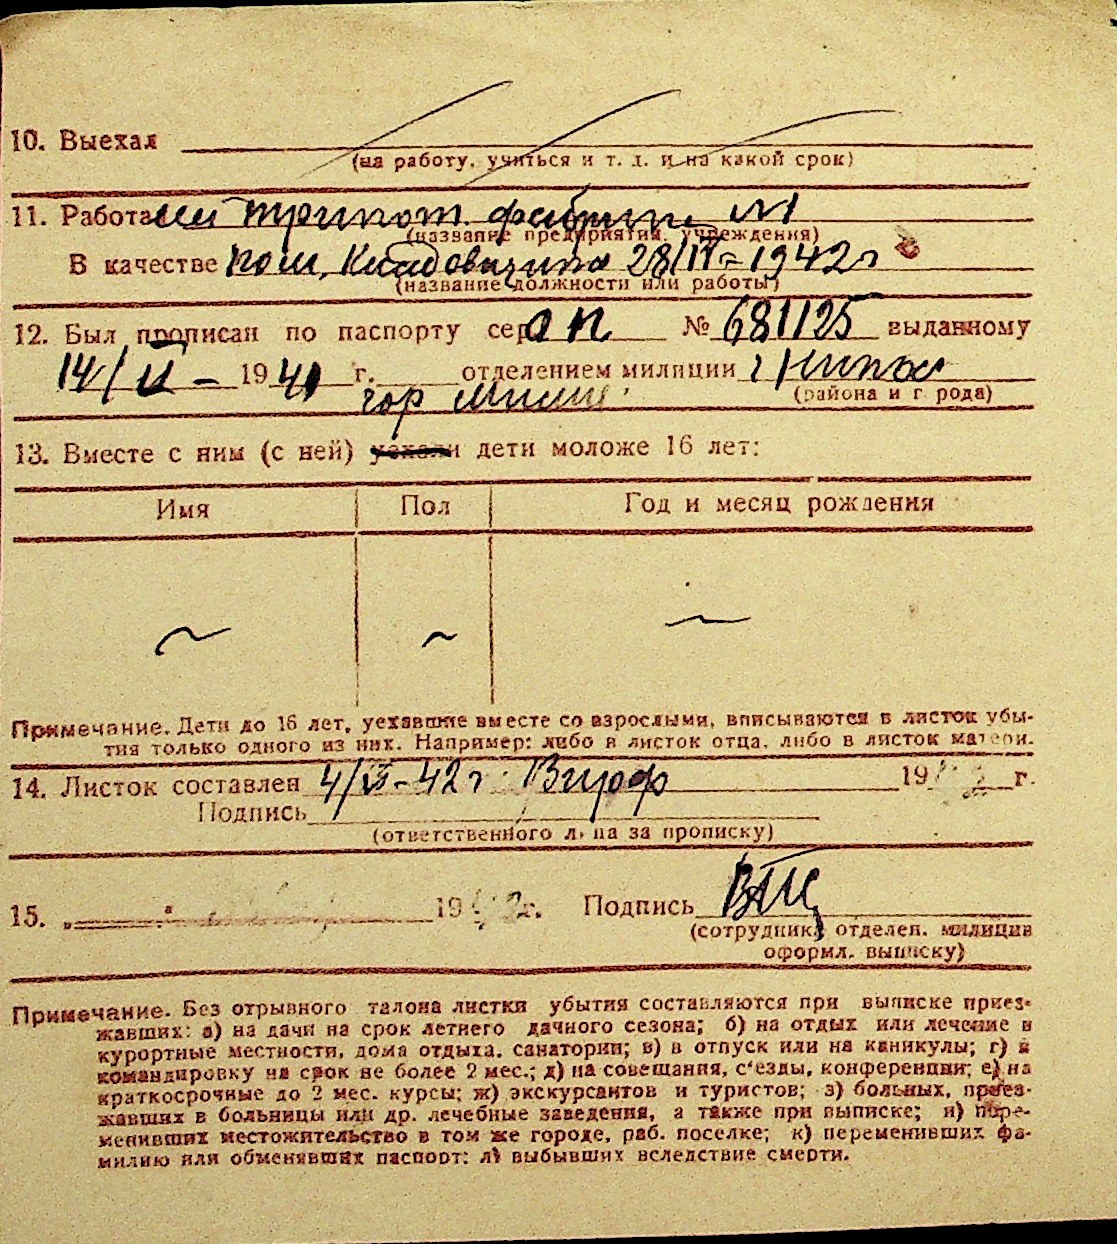 10. Выехал
(на работу, учиться и т. д. и на какой срок)
11. Работа трикот. фабрик N1
(название предприятия, учреждения)
В качестве пом. Кладовщика 28/IV-1942г
(название должности или работы)
12. Был прописан по паспорту сер. ОП № 681125 выданному
14/II - 1941 г. отделением милиции
гор (района и города)
13. Вместе с ним (с ней) уехали дети моложе 16 лет:
Имя Пол Год и месяц рождения
Примечание. Дети до 16 лет, уехавшие вместе со взрослыми, вписываются в листок убы-
тия только одного из них. Например: либо в листок отца, либо в листок матери.
14. Листок составлен 4/ -42г 19 г.
Подпись
(ответственного лица за прописку)
15. „ " 1942г. Подпись
(сотрудника отделен. милиции
оформл. выписку)
Примечание. Без отрывного талона листки убытия составляются при выписке приез-
жавших: а) на дачи на срок летнего дачного сезона; б) на отдых или лечение в
курортные местности, дома отдыха, санатории; в) в отпуск или на каникулы; г) в
командировку на срок не более 2 мес.; д) на совещания, с'езды, конференции; е) на
краткосрочные до 2 мес. курсы; ж) экскурсантов и туристов; з) больных, приез-
жавших в больницы или др. лечебные заведения, а также при выписке; и) пере-
менивших местожительство в том же городе, раб. поселке; к) переменивших фа-
милию или обменявших паспорт; л) выбывших вследствие смерти.